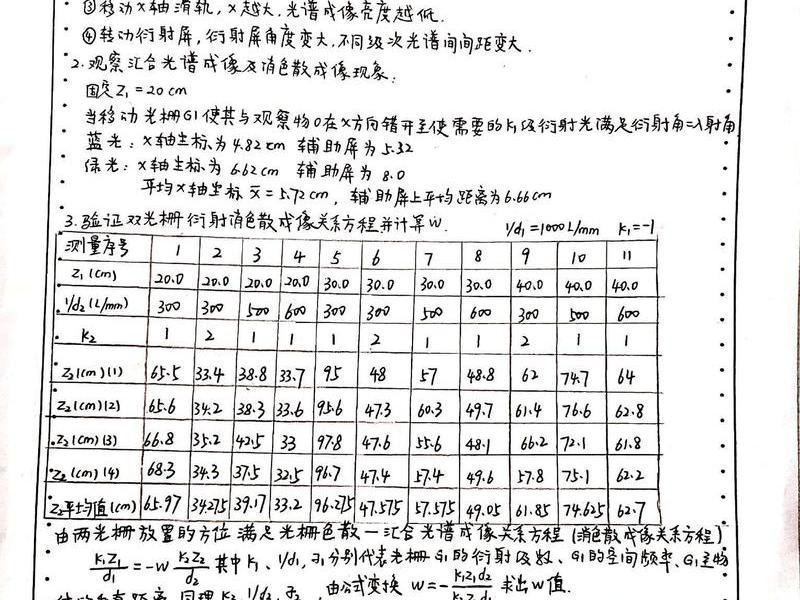 ③移动x轴滑轨,x越大,光谱成像亮度越低.
④转动衍射屏,衍射屏角度变大,不同级次光谱间间距变大.
2.观察汇合光谱成像及消色散成像现象:
固定Z₁=20cm
当移动光栅G1使其与观察物O在x方向错开至使需要的k₁级衍射光满足衍射角=入射角
蓝光: x轴坐标为4.82cm 辅助屏为5.32
绿光: x轴坐标为6.62cm 辅助屏为8.0
平均x轴坐标 x̄=5.72cm, 辅助屏上平均距离为6.66cm
3.验证双光栅衍射消色散成像关系方程并计算W. 1/d₁=1000L/mm k₁=-1
测量序号 1 2 3 4 5 6 7 8 9 10 11
Z₁(cm) 20.0 20.0 20.0 20.0 30.0 30.0 30.0 30.0 40.0 40.0 40.0
1/d₂(L/mm) 300 300 500 600 300 300 500 600 300 500 600
k₂ 1 2 1 1 1 2 1 1 2 1 1
Z₂(cm)(1) 65.5 33.4 38.8 33.7 95 48 57 48.8 62 74.7 64
Z₂(cm)(2) 65.6 34.2 38.3 33.6 95.6 47.3 60.3 49.7 61.4 76.6 62.8
Z₂(cm)(3) 66.8 35.2 42.5 33 97.8 47.6 55.6 48.1 66.2 72.1 61.8
Z₂(cm)(4) 68.3 34.3 37.5 32.5 96.7 47.4 57.4 49.6 57.8 75.1 62.2
Z₂平均值(cm) 65.97 34.275 39.17 33.2 96.275 47.575 57.575 49.05 61.85 74.625 62.7
由两光栅放置的方位满足光栅色散—汇合光谱成像关系方程(消色散成像关系方程)
k₁Z₁/d₁=-W k₂Z₂/d₂ 其中k₁、1/d₁,z₁分别代表光栅G₁的衍射级数、G₁的空间频率、G₁至物
距离,同理k₂、1/d₂、z₂, 由公式变换 W=-k₁z₁d₂/k₂z₂d₁ 求出W值.